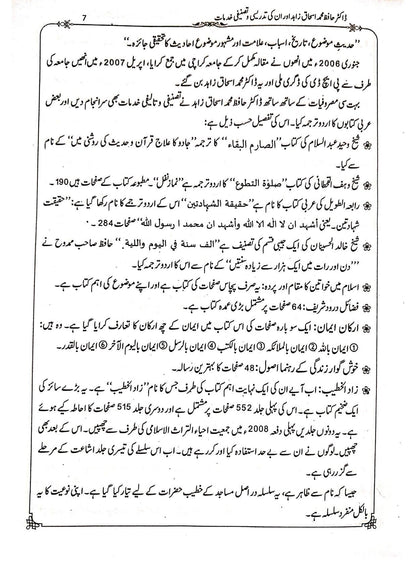 ڈاکٹر حافظ محمد اسحاق زاہد اور ان کی تدریسی و تصنیفی خدمات 7
”حدیث موضوع، تاریخ، اسباب، علامت اور مشہور موضوع احادیث کا تحقیقی جائزہ۔“
جنوری 2006ء میں انھوں نے مقالہ مکمل کر کے جامعہ کراچی میں جمع کرایا، اپریل 2007ء میں انھیں جامعہ کی
طرف سے پی ایچ ڈی کی ڈگری ملی اور یہ ڈاکٹر محمد اسحاق زاہد بن گئے۔
بہت سی مصروفیات کے ساتھ ساتھ ڈاکٹر حافظ محمد اسحاق زاہد نے تصنیفی و تالیفی خدمات بھی سرانجام دیں اور بعض
عربی کتابوں کا اردو ترجمہ کیا۔ اس کی تفصیل حسب ذیل ہے:
شیخ وحید عبدالسلام کی کتاب ”الصارم البتار“ کا ترجمہ ”جادو کا علاج قرآن و حدیث کی روشنی میں“ کے نام
سے کیا۔
شیخ وہف القحطانی کی کتاب ”صلوٰۃ التطوع“ کا اردو ترجمہ ہے ”نماز نفل“۔ مطبوعہ کتاب کے صفحات ہیں 190۔
رابعہ الطویل کی عربی کتاب کا نام ہے ”حقیقة الشهادتین“ اس کے اردو ترجمے کا نام رکھا گیا ہے: ”حقیقت
شہادتین۔ یعنی أشهد ان لا الٰه الا الله وأشهد ان محمد ا رسول الله“ صفحات 284۔
شیخ خالد الحسینان کی ایک عجیبی قسم کی تصنیف ہے ”الف سنة في اليوم والليلة۔“ حافظ صاحب ممدوح نے
”دن اور رات میں ایک ہزار سے زیادہ سنتیں“ کے نام سے اس کا اردو ترجمہ کیا۔
اسلام میں خواتین کا مقام اور پردہ: یہ صرف پچاس صفحات کی کتاب ہے اور اپنے موضوع کی اہم کتاب ہے۔
فضائل درود شریف: 64 صفحات پر مشتمل بڑی عمدہ کتاب ہے۔
ارکان ایمان: ایک سو بارہ صفحات کی اس کتاب میں ایمان کے چھ ارکان کا تعارف کرایا گیا ہے۔ وہ ہیں:
① ایمان باللہ ② ایمان بالملائکہ ③ ایمان بالکتب ④ ایمان بالرسل ⑤ ایمان بالیوم الآخر ⑥ ایمان بالقدر۔
خوش گوار زندگی کے رہنما اصول: 48 صفحات کا بہترین رسالہ۔
زاد الخطیب: اب آیے ان کی ایک نہایت اہم کتاب کی طرف جس کا نام ”زاد الخطیب“ ہے۔ یہ بڑے سائز کی
ایک ضخیم کتاب ہے۔ اس کی پہلی جلد 552 صفحات پر مشتمل ہے اور دوسری جلد 515 صفحات کا احاطہ کیے ہوئے
ہے۔ یہ دونوں جلدیں پہلی دفعہ 2008ء میں جمعیت احیاء التراث الاسلامی کی طرف سے چھپیں۔ اس کے بعد بھی
چھپیں۔ لوگوں نے ان سے بے حد استفادہ کیا اور کر رہے ہیں۔ اب اس سلسلے کی تیسری جلد اشاعت کے مرحلے
سے گزر رہی ہے۔
جیسا کہ نام سے ظاہر ہے، یہ سلسلہ دراصل مساجد کے خطیب حضرات کے لیے تیار کیا گیا ہے۔ اپنی نوعیت کا یہ
بالکل منفرد سلسلہ ہے۔